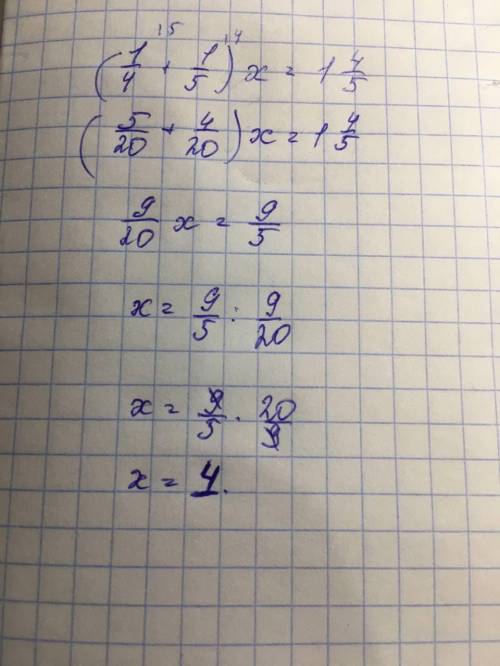 (1/4 \5 + 1/5 \4) x = 1 4/5
(5/20 + 4/20) x = 1 4/5
9/20 x = 9/5
x = 9/5 : 9/20
x = 9/5 · 20/9
x = 4.